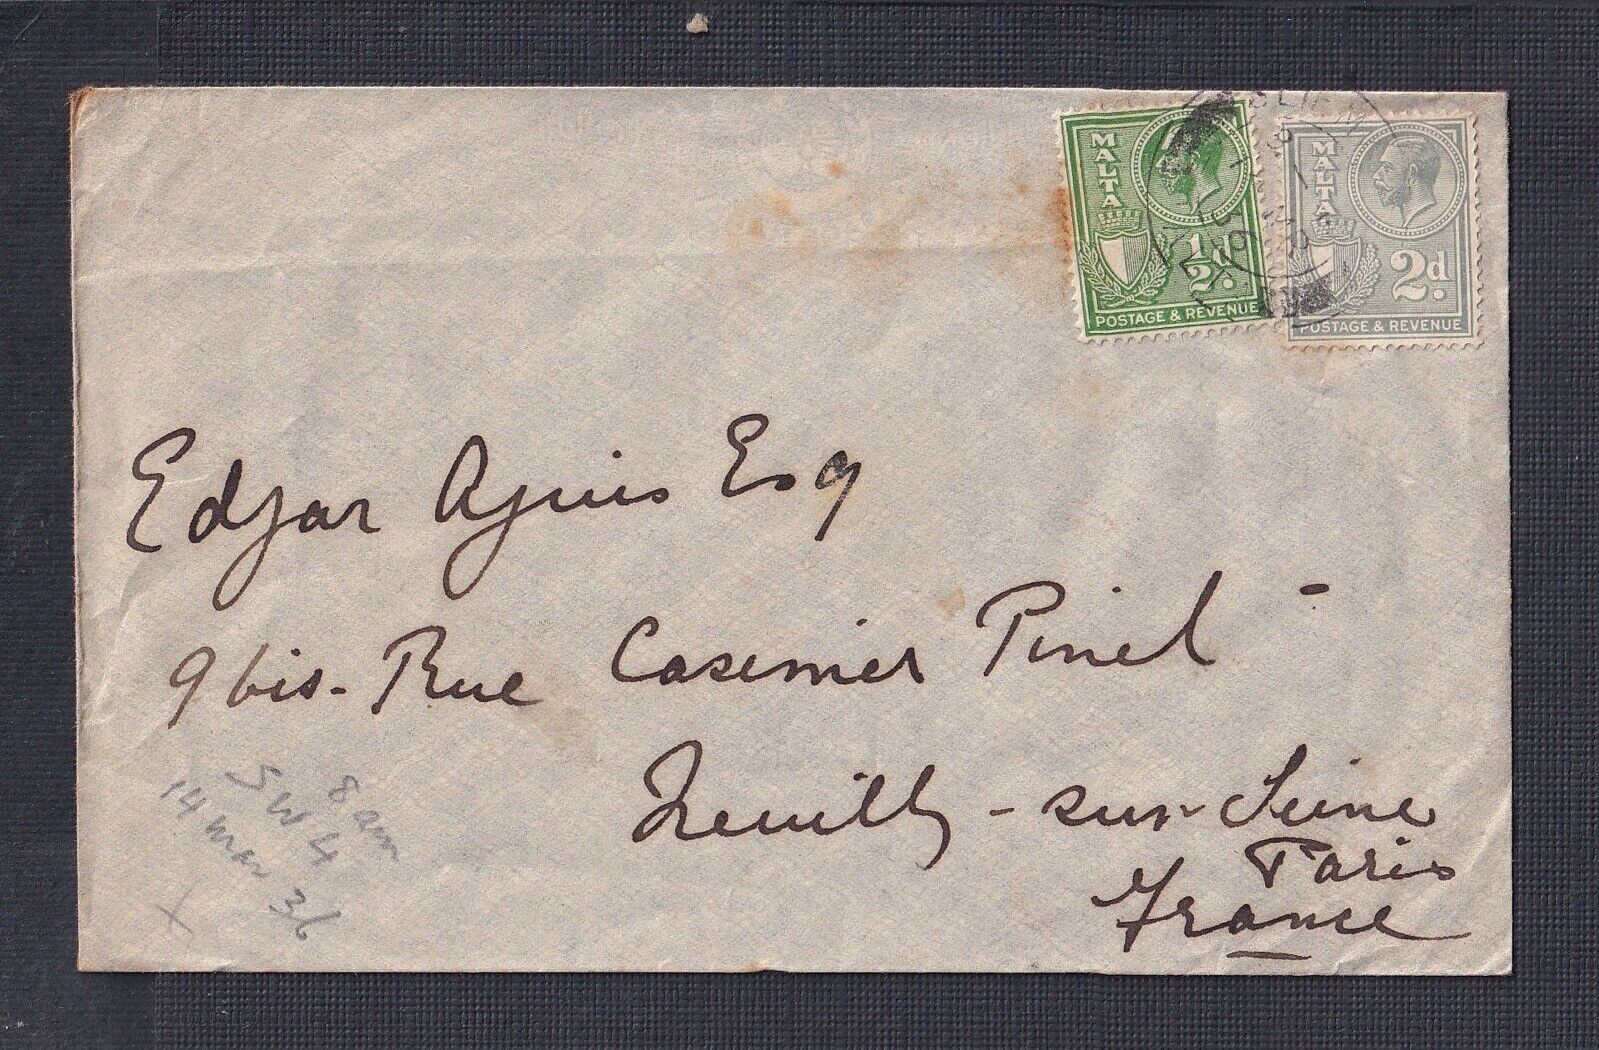 MALTA
½d.
POSTAGE & REVENUE
MALTA
2d.
POSTAGE & REVENUE
SLIEMA
Edgar Agius Esq
9 bis - Rue Casimir Pinel -
Neuilly - sur - Seine
Paris
France
8 am
SW 4
14 Mar 36
X